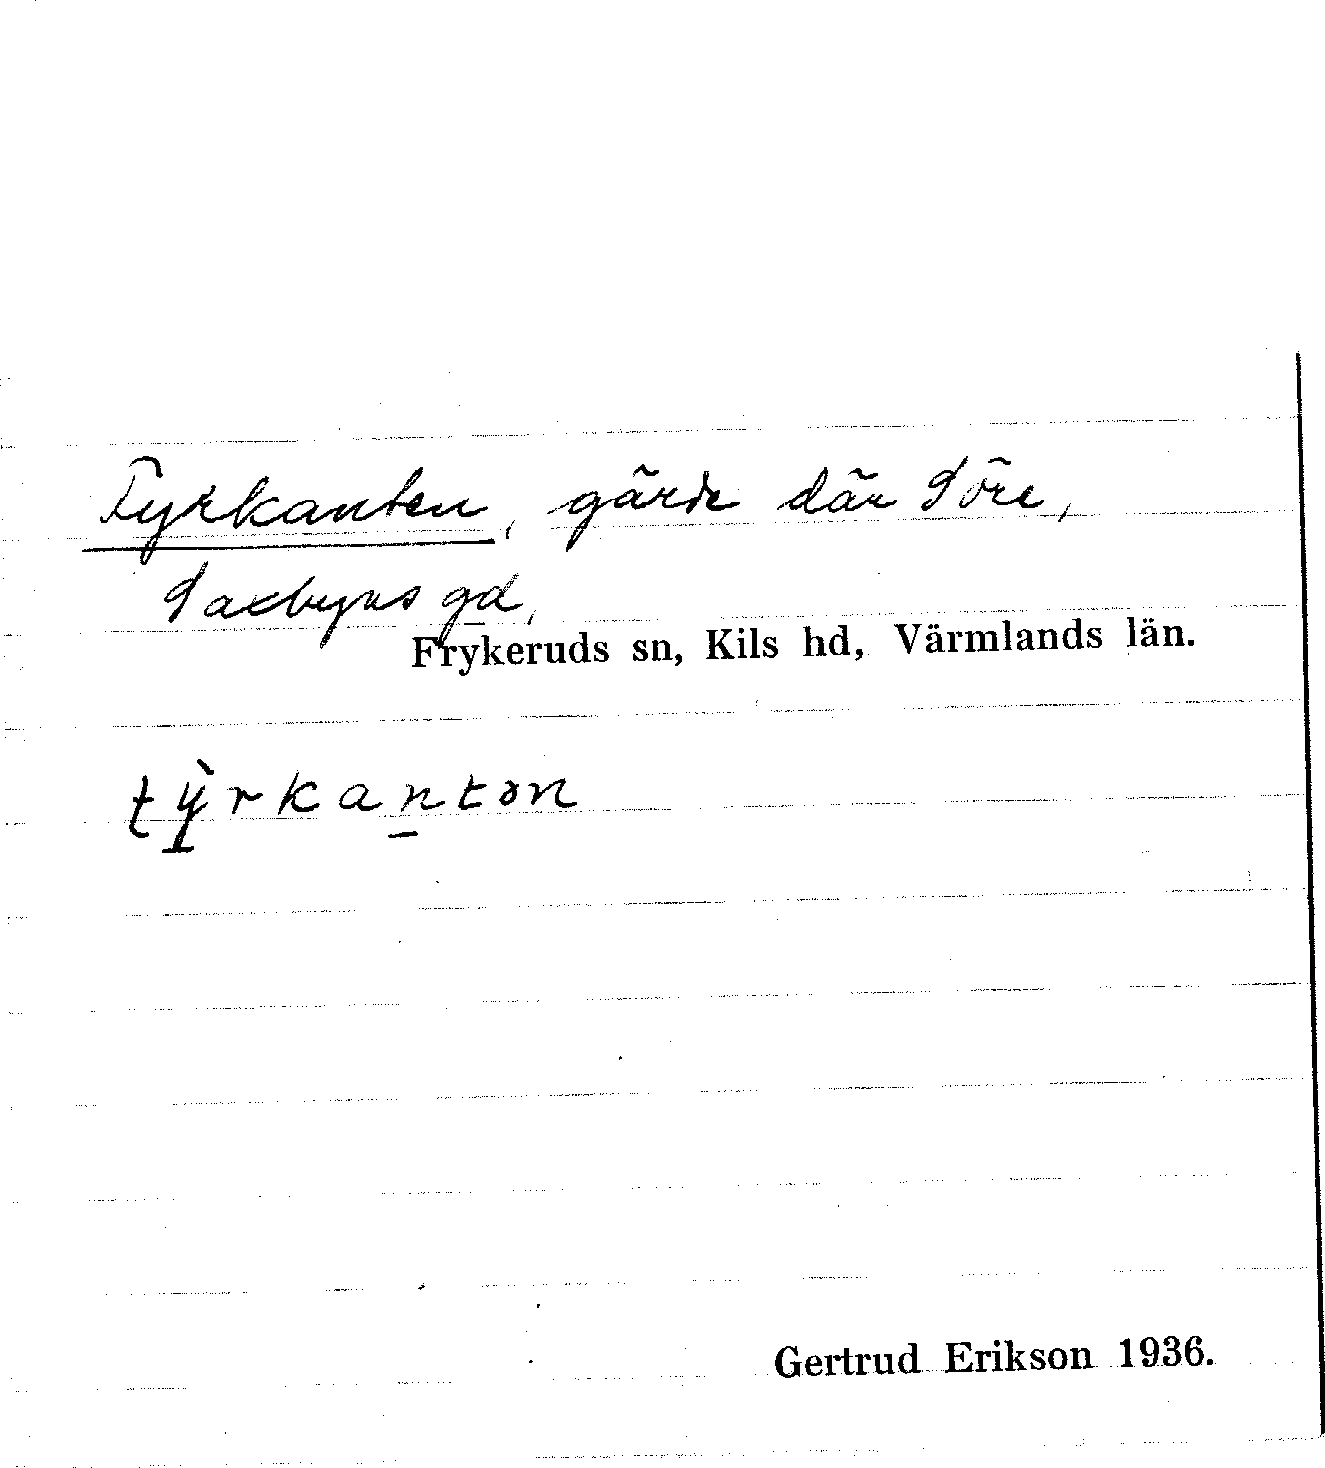 Fyrkanten, gärde där Söre,
Saxbyns gd,
Frykeruds sn, Kils hd, Värmlands län.
fỳ̠rkan̠tən
Gertrud Erikson 1936.